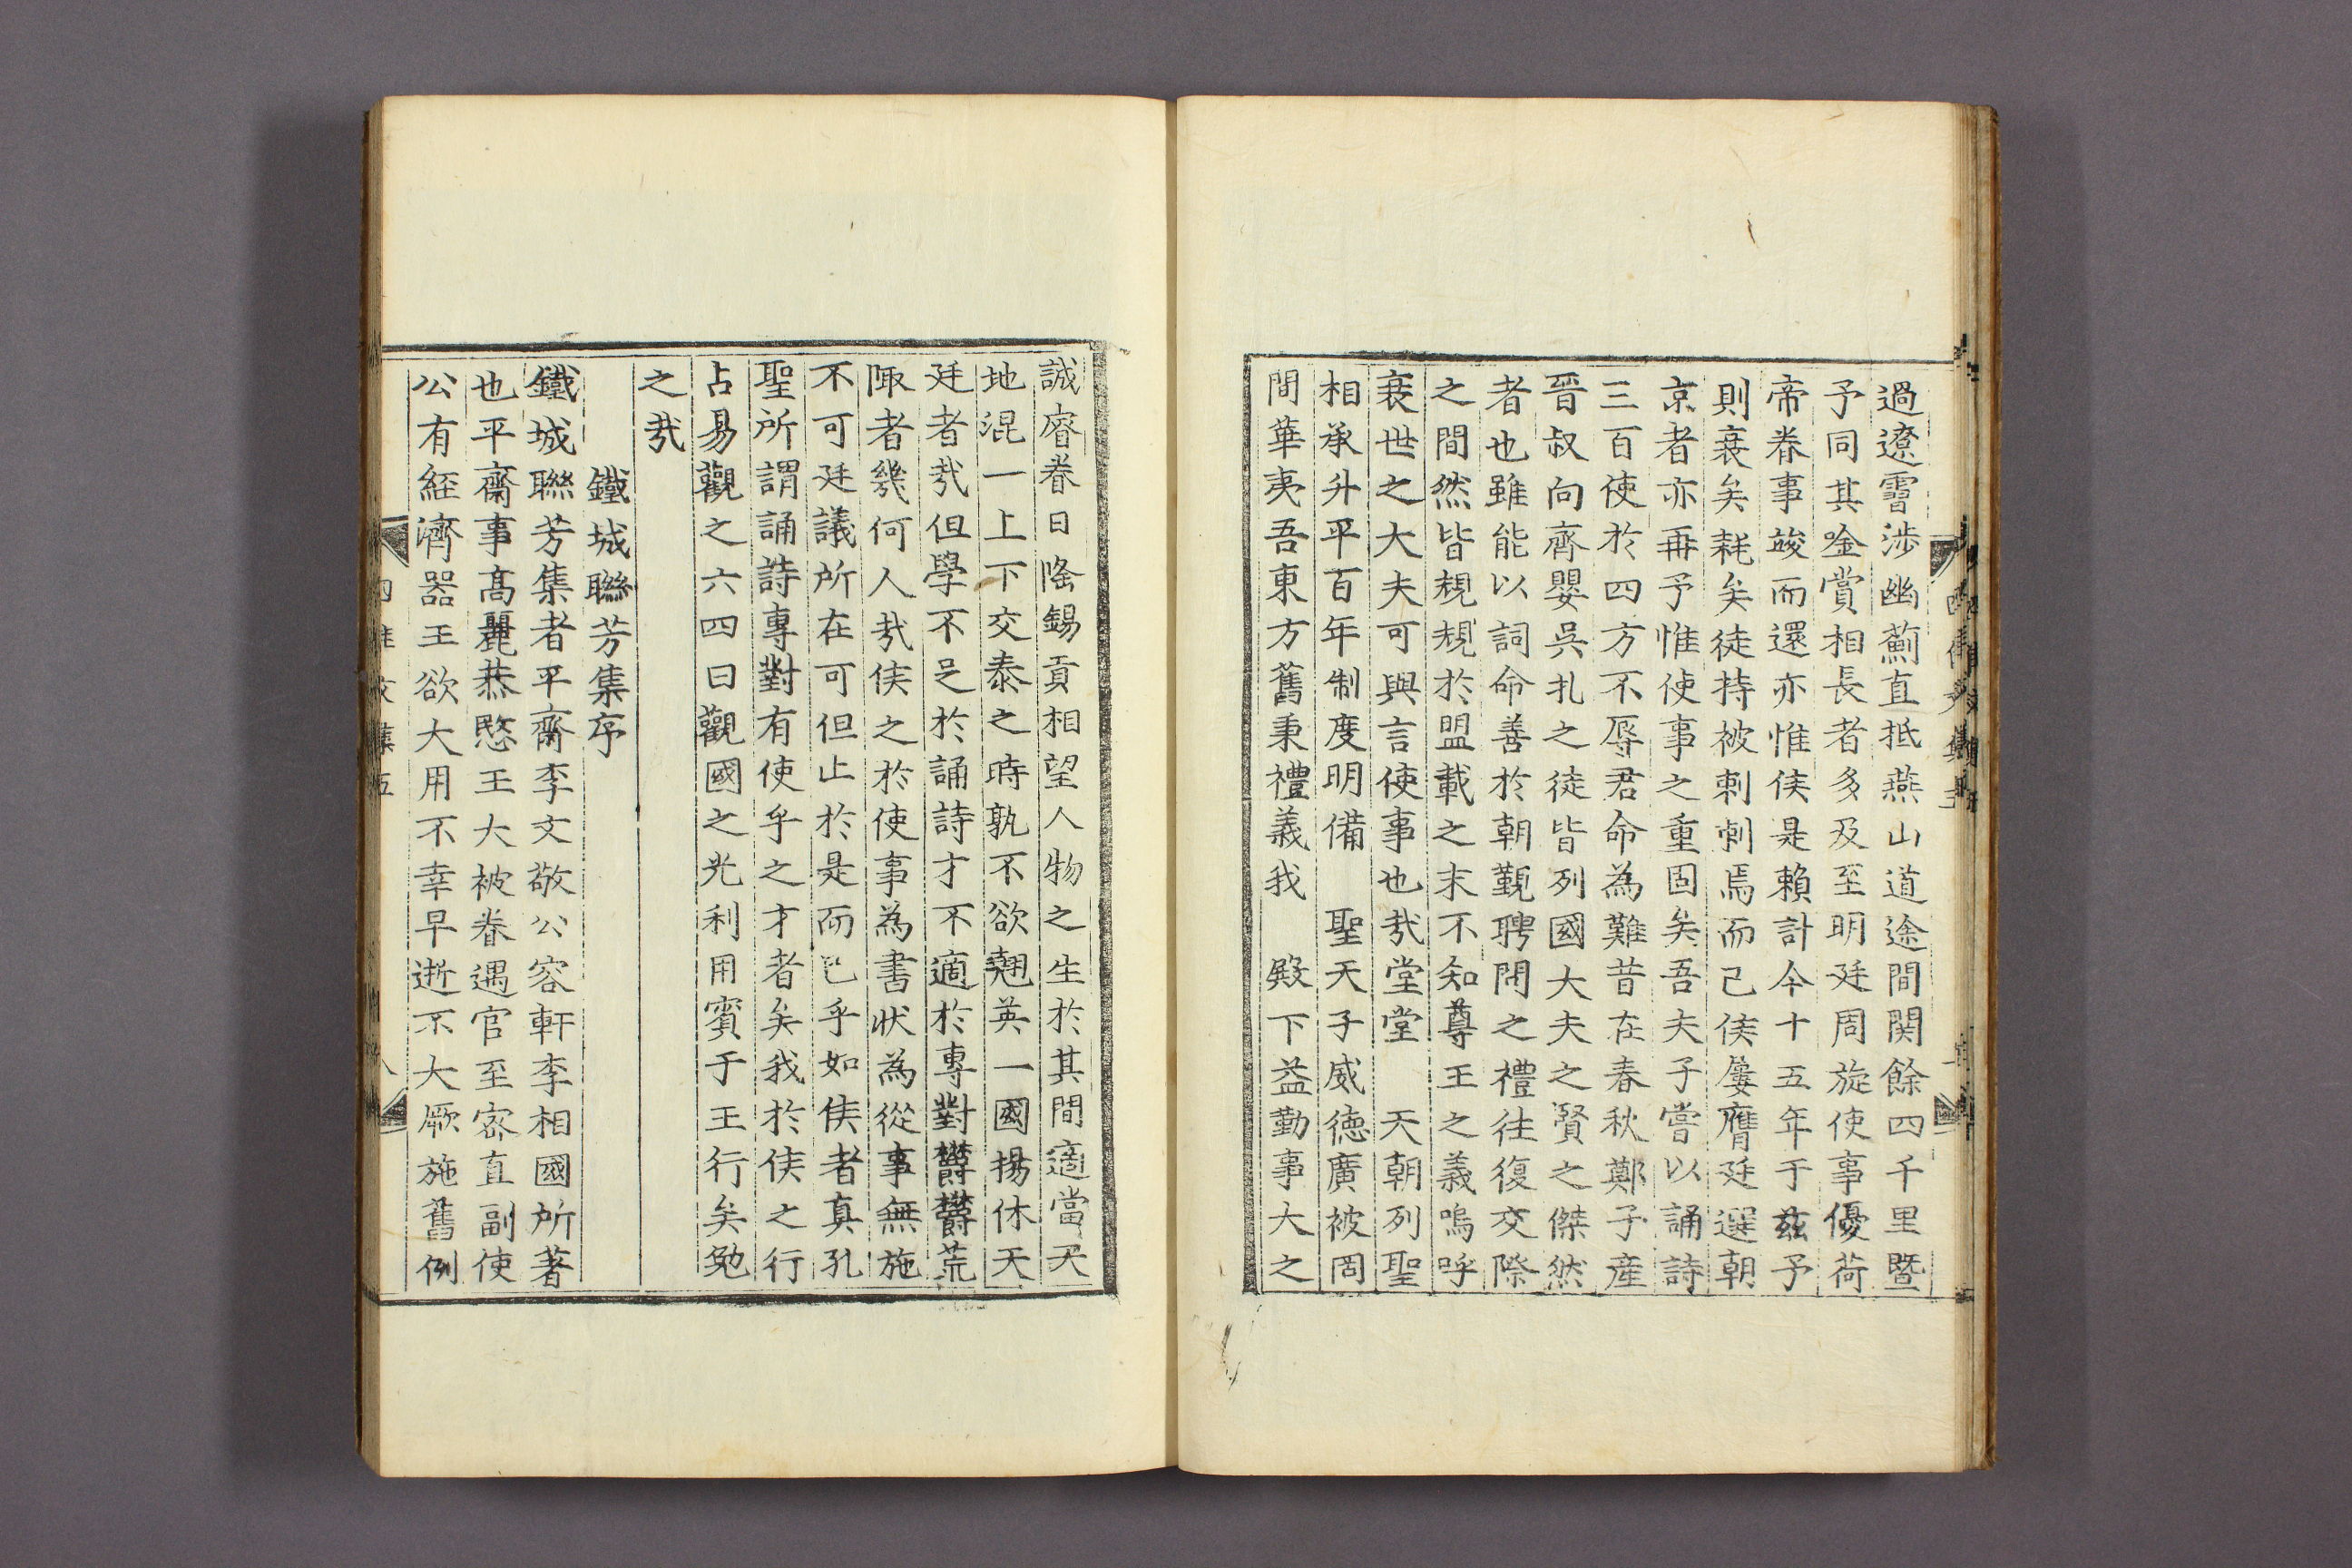 過遼霫涉幽薊直抵燕山道途間関餘四千里暨
予同其唫賞相長者多及至明廷周旋使事優荷
帝眷事竣而還亦惟侯是賴計今十五年于玆予
則衰矣耗矣徒持被刺刺焉而已侯屢膺廷選朝
京者亦再予惟使事之重固矣吾夫子嘗以誦詩
三百使於四方不辱君命為難昔在春秋鄭子産
晉叔向齊嬰吳扎之徒皆列國大夫之賢之傑然
者也雖能以詞命善於朝覲聘問之禮往復交際
之間然皆規規於盟載之末不知尊王之義嗚呼
衰世之大夫可與言使事也㢤堂堂 天朝列聖
相承升平百年制度明備 聖天子威德廣被罔
間華夷吾東方舊秉禮義我 殿下益勤事大之
誠睿眷日隆錫貢相望人物之生於其間適當天
地混一上下交泰之時孰不欲翹英一國揚休天
廷者㢤但學不足於誦詩才不適於專對欝欝荒
陬者幾何人㢤侯之於使事為書狀為從事無施
不可廷議所在可但止於是而已乎如侯者真孔
聖所謂誦詩專對有使乎之才者矣我於侯之行
占易觀之六四曰觀國之光利用賓于王行矣勉
之㢤
鐵城聯芳集序
鐵城聯芳集者平齋李文敬公容軒李相國所著
也平齋事高麗恭愍王大被眷遇官至密直副使
公有経濟器王欲大用不幸早逝不大厥施舊例